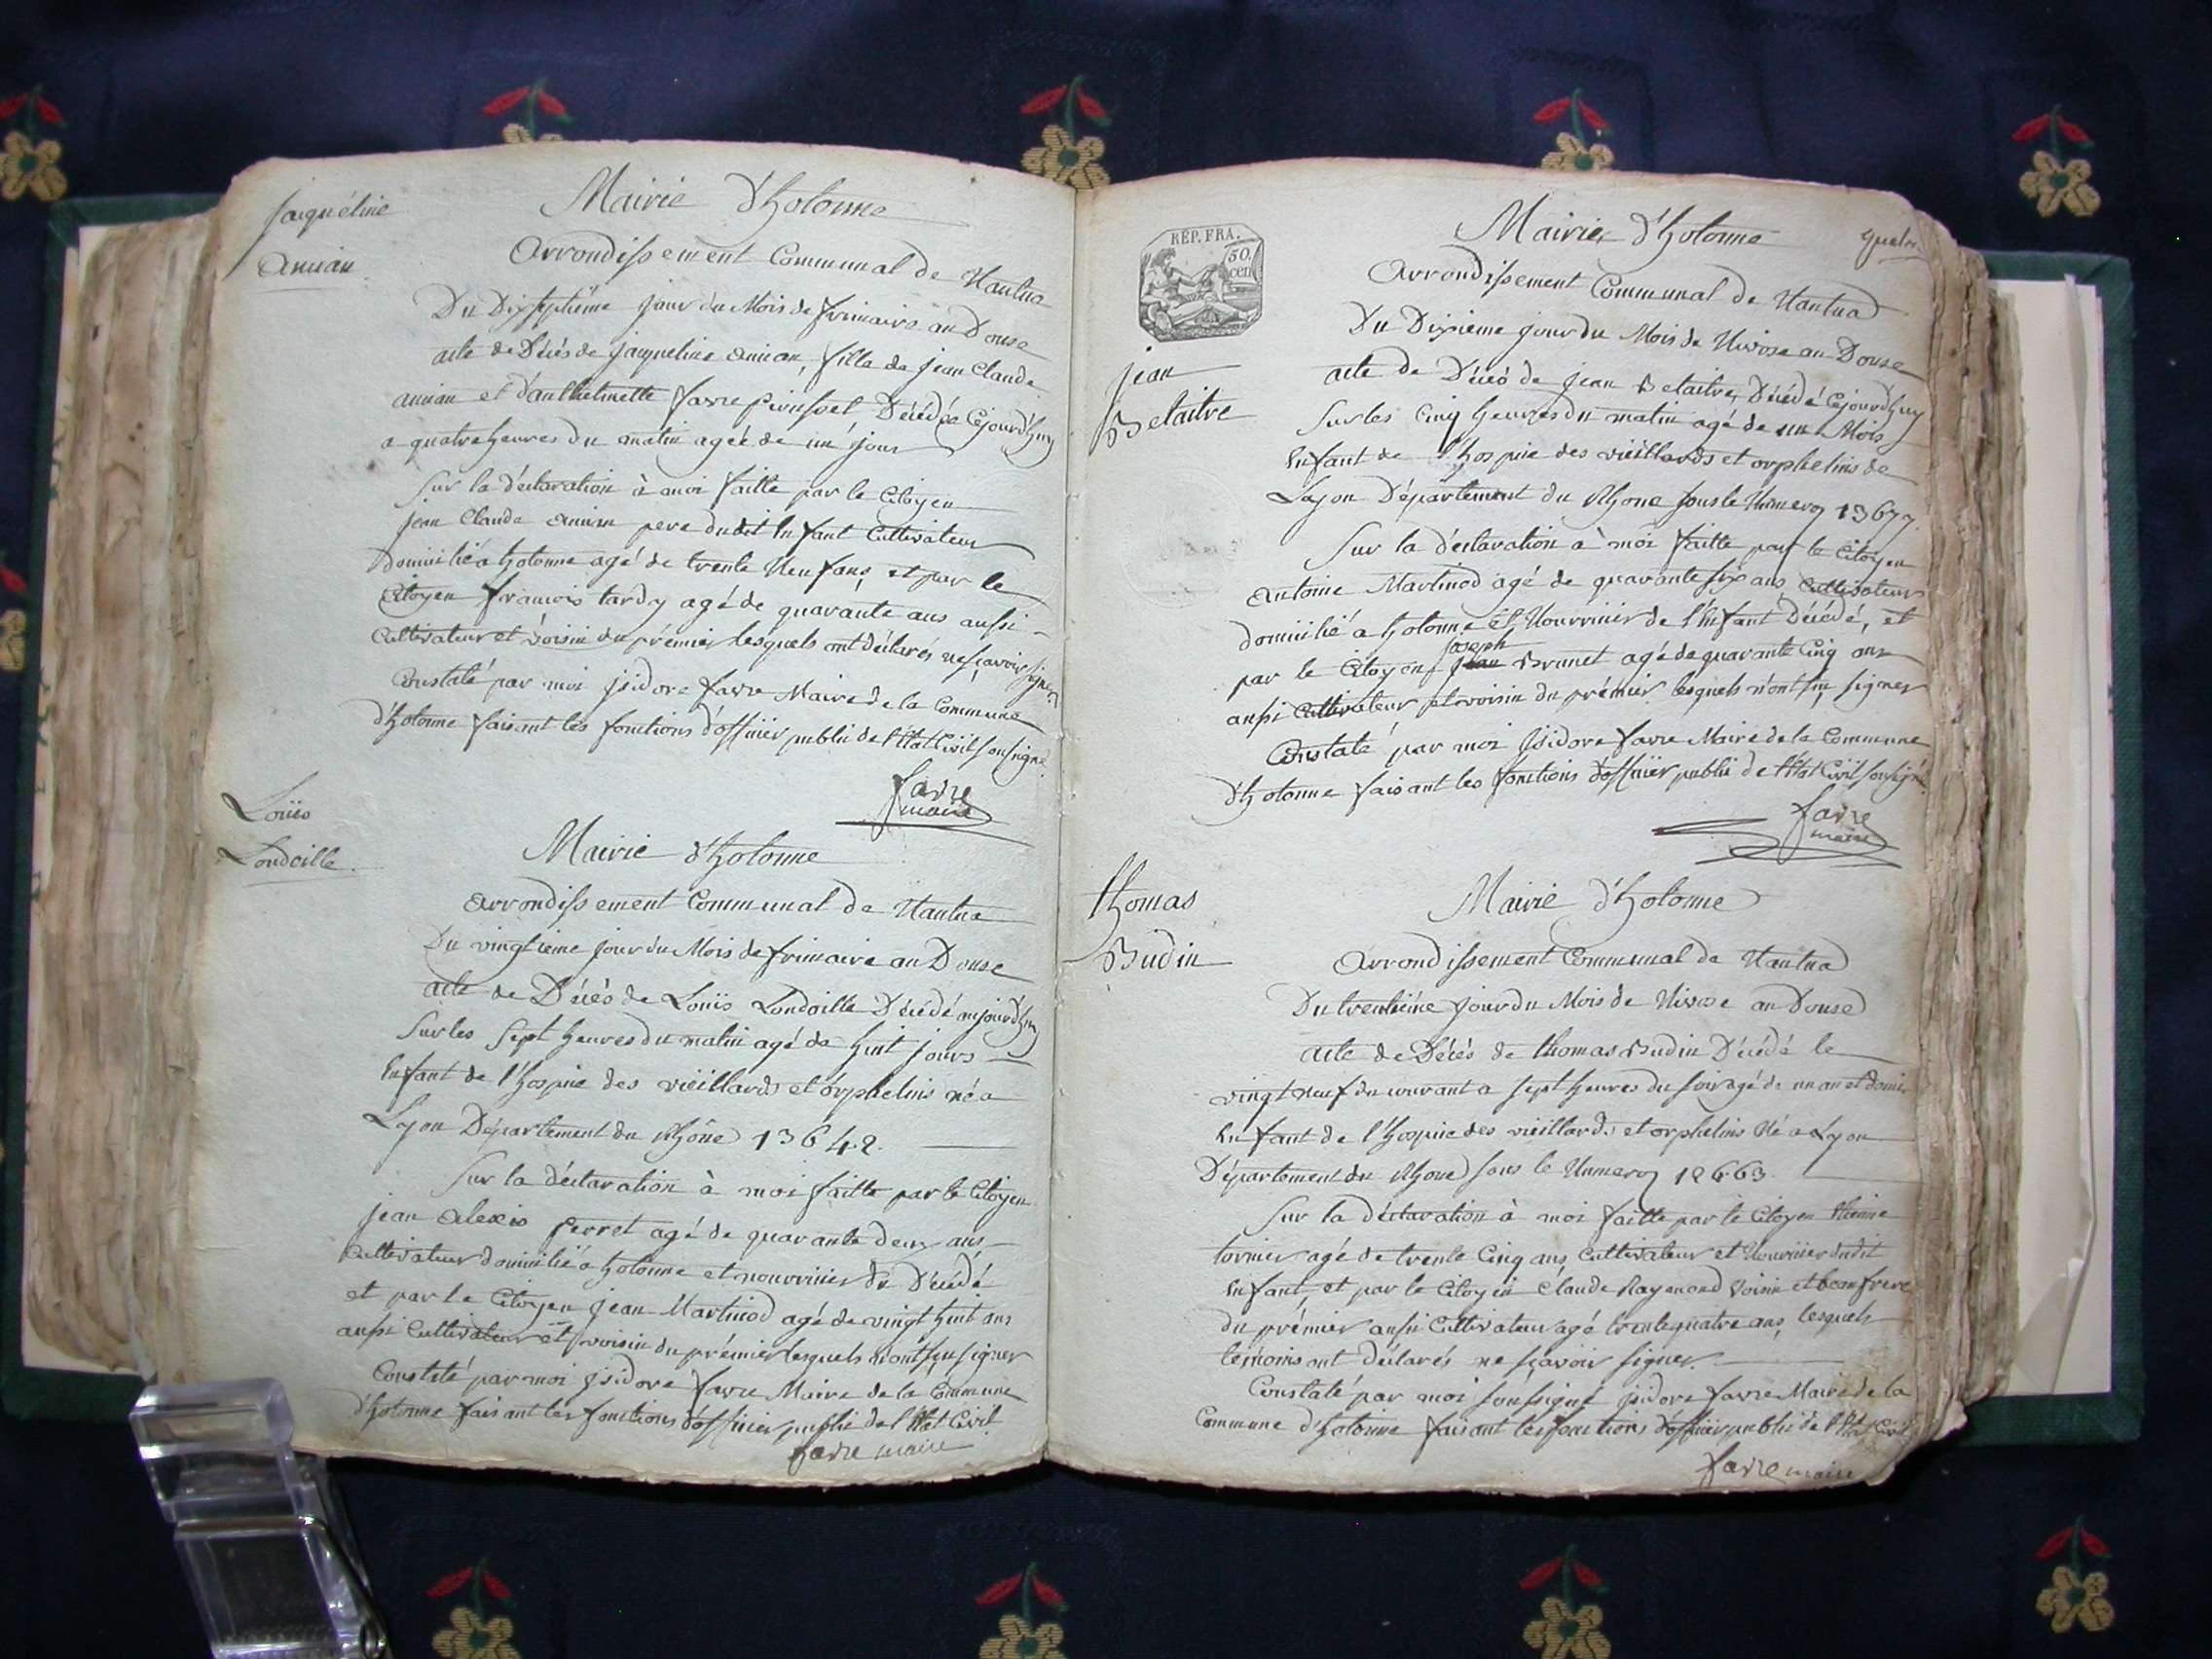 Jaqueline
Amian
Mairie d'hotonne
Arrondissement Communal de Nantua
Du Dixseptième jour du Mois de frimaire an Douse
acte de Décès de jacqueline amian, fille de jean Claude
amian et d'anthelmette favre Décédée Cejourd'huy
a quatre heures du matin ageé de un jour
Sur la déclaration à moi faitte par le Citoyen
jean Claude amian pere dudit Enfant Cultivateur
Domicilié a hotonne agé de trente Neuf ans, et par le
Citoyen françois tardy agé de quarante ans aussi
Cultivateur et voisin du prémier lesquels ont déclarés ne sçavoir signer
Constaté par moi jsidore favre Maire de la Commune
d'hotonne faisant les fonctions d'officier public de l'Etat Civil sousigné
favre
maire
Louis
Londoille
Mairie d'hotonne
Arrondissement Communal de Nantua
Du vingtieme jour du Mois de frimaire an Douse
acte de Décès de Louis Londoille Décédé aujourd'huy
Sur les Sept heures du matin agé de huit jours
Enfant de l'hospice des vieillards et orphelins né a
Lyon Département du Rhône 13642.
Sur la déclaration à moi faitte par le Citoyen
jean Alexis perret agé de quarante deux ans
Cultivateur domicilié a hotonne et nourricier du Décédé
et par le Citoyen jean Martinod agé de vingt huit ans
aussi Cultivateur et voisin du prémier lesquels n'ont su signer
Constaté par moi jsidore favre Maire de la Commune
d'hotonne faisant les fonctions d'officier public de l'Etat Civil
favre maire
REP. FRA.
50.
cen
Mairie d'hotonne
jean
Belaitre
Arrondissement Communal de Nantua
Du Dixieme jour du Mois de Nivose an Douse
acte de Décès de jean Belaitre, Décédé Cejourd'huy
Sur les Cinq heures du matin agé de un Mois
Enfant de l'hospice des vieillards et orphelins de
Lyon Département du Rhone sous le Numero 13677.
Sur la déclaration à moi faitte par le Citoyen
Antoine Martinod agé de quarante six ans, Cultivateur
domicilié a hotonne et Nourricier de l'Enfant Décédé, et
joseph
par le Citoyen jean Brunet agé de quarante Cinq ans
aussi Cultivateur et voisin du prémier lesquels n'ont su signer
Constaté par moi jsidore favre Maire de la Commune
d'hotonne faisant les fonctions d'officier public de l'Etat Civil sousigné
favre
maire
thomas
Budin
Mairie d'hotonne
Arrondissement Communal de Nantua
Du trentiéme jour du Mois de Nivose an Douse
acte de Décès de thomas Budin Décédé le
vingt neuf du courant a sept heures du soir agé de un an et demi
Enfant de l'hospice des vieillards et orphelins Né a Lyon
Département du Rhone sous le Numero 12663.
Sur la déclaration à moi faitte par le Citoyen Etienne
tornier agé de trente Cinq ans, Cultivateur et Nourricier dudit
Enfant, et par le Citoyen Claude Raymond Voisin et beaufrere
du prémier aussi Cultivateur agé trente quatre ans, lesquels
temoins ont déclarés ne sçavoir signer
Constaté par moi sousigné jsidore favre Maire de la
Commune d'hotonne faisant les fonctions d'officier public de l'Etat Civil
favre maire